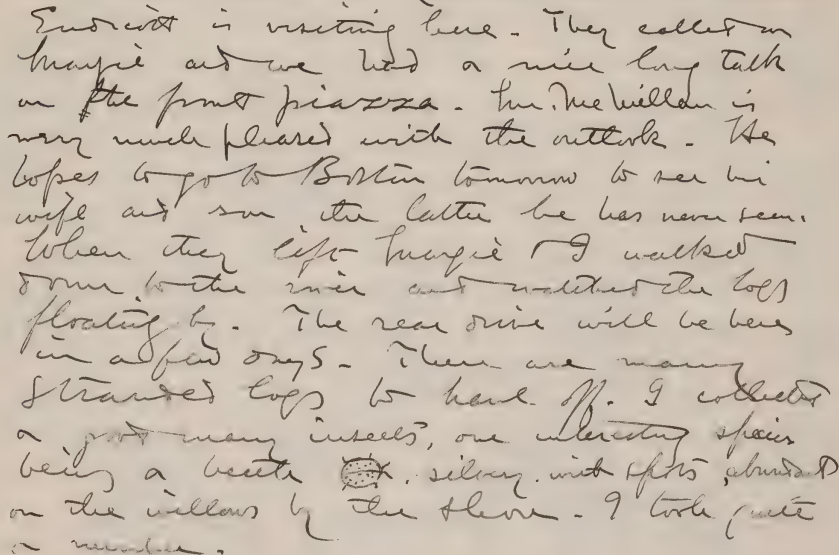 Endicott is visiting here. They called on
Margie and we had a nice long talk
on the front piazza. Mr. McMillan is
very much pleased with the outlook. He
hopes to go to Boston tomorrow to see his
wife and son the latter he has never seen.
When they left Margie & I walked
down to the river and watched the logs
floating by. The rear drive will be here
in a few days. There are many
stranded logs to haul off. I collected
a good many insects, one interesting species
being a beetle silvery with spots, abundant
on the willows by the shore. I took quite
a number.